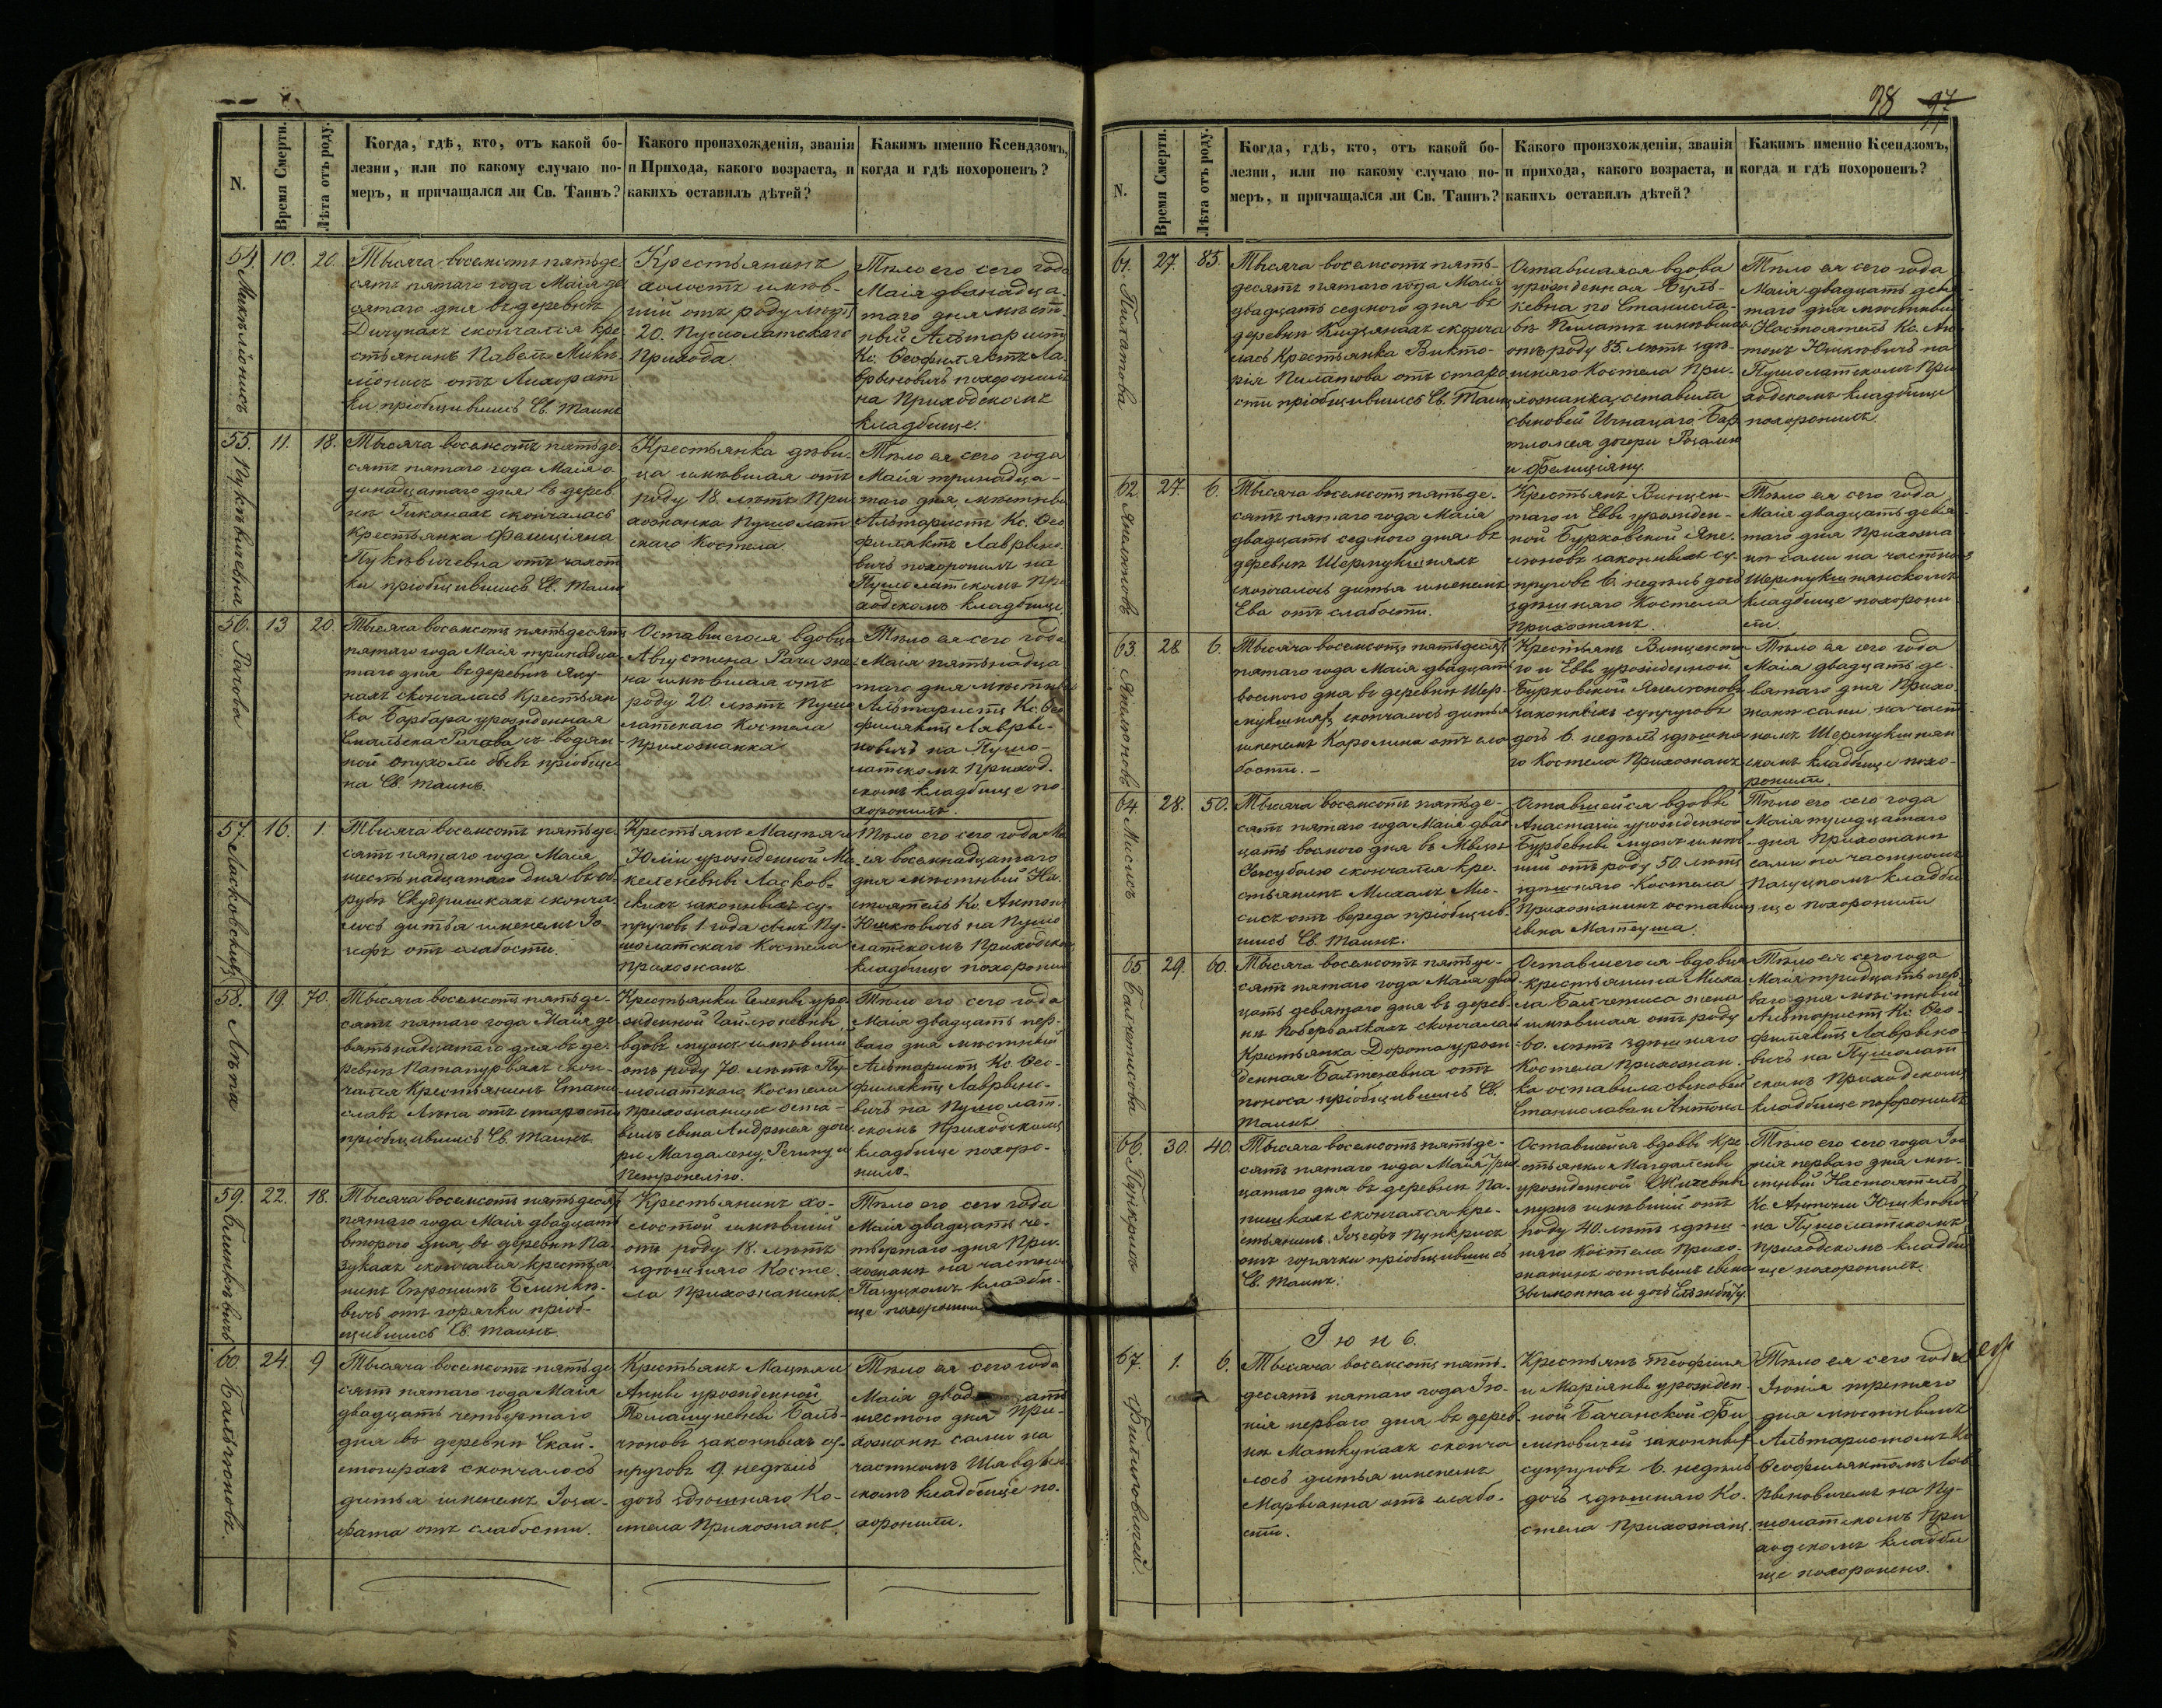 98 97
N.
Время Смерти.
Лѣта отъ роду.
Когда, гдѣ, кто, отъ какой бо-
лезни, или по какому случаю по-
меръ, и причащался ли Св. Таинъ?
Какого произхожденія, званія
и Прихода, какого возраста, и
какихъ оставилъ дѣтей?
Какимъ именно Ксендзомъ,
когда и гдѣ похороненъ?
54.
10.
20.
Тысяча восемсотъ пятьде-
сятъ пятаго года Маія де
сятаго дня въ деревнѣ
скончался кре
стьянинъ Павелъ
отъ Лихорат
ки пріобщившись Св. Таинъ
Крестьянинъ
холостъ имѣв-
шій отъ роду лѣтъ
20. Пушолатскаго
Прихода.
Тѣло его сего года
Маія двѣнадца-
таго дня мѣст-
ный Альтаристъ
Кс. Феофилактъ Ла-
врыновичъ похоронилъ
на Приходскомъ
кладбище.
55.
11.
18.
Тысяча восемсотъ пятьде-
сятъ пятаго года Маія о-
динадцатаго дня въ дерев
нѣ скончалась
Крестьянка Фелиціяна
Пукѣвичевна отъ чахот
ки пріобщившись Св. Таинъ
Крестьянка дѣви-
ца имѣвшая отъ
роду 18. лѣтъ При
хожанка Пушолат
скаго Костела
Тѣло ея сего года
Маія тринадца-
таго дня, мѣстный
Альтаристъ Кс. Фео
филактъ Лаврыно-
вичъ похоронилъ на
Пушолатскомъ При
ходскомъ кладбище.
56.
Рачова
13
20.
Тысяча восемсотъ пятьдесятъ
пятаго года Маія тринадца
таго дня въ деревнѣ Яну-
нахъ скончалась Крестьян
ка Барбара урожденная
Рачова съ водян
ной опухоли бывъ пріобще
на Св. Таинъ.
Оставшегося вдовца
Августина Рачи же-
на имѣвшая отъ
роду 20. лѣтъ Пушо
латскаго Костела
Прихожанка
Тѣло ея сего года
Маія пятьнадца
таго дня мѣстный
Альтаристъ Кс. Фео
филактъ Лавры-
новичъ на Пушо-
латскомъ Приход.
скомъ кладбище по-
хоронилъ.
57.
Ласковскихъ
16.
1.
Тысяча восемсотъ пятьде
сятъ пятаго года Маія
шестьнадцатаго дня въ об-
рубѣ Скудришкахъ сконча
лось дитья именемъ Іо-
зефъ отъ слабости.
Крестьянъ Мацѣя и
Юліи урожденной Ми
келеневны Ласков-
скихъ законныхъ су-
пруговъ 1 года сынъ Пу-
шолатскаго Костела
Прихожанъ
Тѣло его сего года Ма
ія восемнадцатаго
дня мѣстный На-
стоятель Кс. Антонъ
Юшкѣвичъ на Пушо
латскомъ Приходском
кладбище похоронилъ
58.
Лѣпа
19.
70.
Тысяча восемсотъ пятьде-
сятъ пятаго года Маія де
вятьнадцатаго дня въ де-
ревнѣ скон-
чался Крестьянинъ Стани
славъ Лѣпа отъ старости
пріобщившись Св. Таинъ.
Крестьянки Елены уро-
жденной Гайлюневны
вдовы мужъ имѣвшій
отъ роду 70. лѣтъ Пу-
шолатскаго Костела
Прихожанинъ оста-
вилъ сына Андржея доче
ри Магдалену, Регину и
Петронелію.
Тѣло его сего года
Маія двадцать пер-
ваго дня мѣстный
Альтаристъ Кс. Фео-
филактъ Лаврыно-
вичъ на Пушолат-
скомъ Приходскомъ
кладбище похоро-
нилъ.
59.
22.
18.
Тысяча восемсотъ пятьдесятъ
пятаго года Маія двадцать
втораго дня, въ деревнѣ Па-
зукахъ скончался крестья
нинъ Іеронимъ
вичъ отъ горячки пріоб-
щившись Св. Таинъ.
Крестьянинъ хо-
лостой имѣвшій
отъ роду 18. лѣтъ
здѣшняго Косте-
ла Прихожанинъ.
Тѣло его сего года
Маія двадцать че-
твертаго дня При-
хожанѣ на частном
кладби-
ще похоронили
60.
Бальчюновъ
24.
9
Тысяча восемсотъ пятьде
сятъ пятаго года Маія
двадцать четвертаго
дня въ деревнѣ Скай-
стгирахъ скончалось
дитья именемъ Іоза-
фата отъ слабости.
Крестьянъ Мацѣя и
Анны урожденной
Томашуневны Баль-
чюновъ законныхъ су-
пруговъ 9. недѣль
дочь здѣшняго Ко-
стела Прихожанъ.
Тѣло ея сего года
Маія двадцать
шестого дня При-
хожанѣ сами на
частномъ
скомъ кладбище по-
хоронили.
N.
Время Смерти.
Лѣта отъ роду.
Когда, гдѣ, кто, отъ какой бо-
лезни, или по какому случаю по-
меръ, и причащался ли Св. Таинъ?
Какого произхожденія, званія
и прихода, какого возраста, и
какихъ оставилъ дѣтей?
Какимъ именно Ксендзомъ,
когда и гдѣ похороненъ?
61.
Пилатова
27.
85.
Тысяча восемсотъ пять-
десятъ пятаго года Маія
двадцать седмого дня въ
деревнѣ сконча
лась Крестьянка Викто-
рія Пилатова отъ старо
сти пріобщившись Св. Таинъ
Оставшаяся вдова
урожденная Буль-
кевна по Станисла-
вѣ Пилатѣ имѣвшая
отъ роду 85. лѣтъ здѣ-
шняго Костела При-
хожанка, оставила
сыновей Игнацаго, Бар-
тломея дочери Розалію
и Фелиціяну.
Тѣло ея сего года
Маія двадцать девя
таго дня мѣстный
Настоятель Кс. Ан
тонъ Юшкѣвичъ на
Пушолатскомъ При
ходскомъ кладбище
похоронилъ.
62.
Анелюновъ
27.
6.
Тысяча восемсотъ пятьде-
сятъ пятаго года Маія
двадцать седмого дня въ
деревнѣ Шермукшняхъ
скончалось дитья именемъ
Ева отъ слабости.
Крестьянъ Винцен-
таго и Евы урожден-
ной Бурковской Ане-
люновъ законныхъ су-
пруговъ 6. недѣль дочь
здѣшняго Костела
Прихожанъ.
Тѣло ея сего года
Маія двадцать девя
таго дня Прихожа
нѣ сами на частномъ
Шермукшнянскомъ
кладбище похорони
ли.
63.
Анелюновъ
28
6.
Тысяча восемсотъ пятьдесятъ
пятаго года Маія двадцать
восмого дня въ деревнѣ Шер-
мукшняхъ скончалось дитья
именемъ Каролина отъ сла
бости.
Крестьянъ Винцента-
го и Евы урожденной
Бурковской Анелюновъ
законныхъ супруговъ
дочь 6. недѣль здѣшня
го Костела Прихожанъ
Тѣло ея сего года
Маія двадцать де-
вятаго дня Прихо
жанѣ сами на част
номъ Шермукшнян
скомъ кладбище похо-
ронили.
64.
Мисисъ
28.
50.
Тысяча восемсотъ пятьде-
сятъ пятаго года Маія двад
цать восмого дня въ
скончался кре-
стьянинъ Михалъ Ми-
сисъ отъ вереда пріобщив-
шись Св. Таинъ.
Оставшейся вдовы
Анастазіи урожденной
мужъ имѣв
шій отъ роду 50. лѣтъ
здѣшняго Костела
Прихожанинъ оставилъ
сына Матеуша.
Тѣло его сего года
Маія тридцатаго
дня Прихожанѣ
сами на частномъ
кладби
ще похоронили
65.
29.
60.
Тысяча восемсотъ пятьде-
сятъ пятаго года Маія два
цать девятаго дня въ дерев-
нѣ скончалась
Крестьянка Дорота урож-
денная отъ
поноса пріобщившись Св.
Таинъ
Оставшегося вдовца
крестьянина Миха
ла жена
имѣвшая отъ роду
60. лѣтъ здѣшняго
Костела Прихожан-
ка оставила сыновей
Станислава и Антона
Тѣло ея сего года
Маія тридцать пер-
ваго дня мѣстный
Альтаристъ Кс. Фео-
филактъ Лаврыно-
вичъ на Пушолат
скомъ Приходскомъ
кладбище похоронилъ
66.
30.
40.
Тысяча восемсотъ пятьде-
сятъ пятаго года Маія трид
цатаго дня въ деревнѣ Па-
скончался кре-
стьянинъ Іозефъ
отъ горячки пріобщившись
Св. Таинъ.
Оставшейся вдовы кре
стьянки Магдалены
урожденной
мужъ имѣвшій отъ
роду 40. лѣтъ здѣш-
няго Костела Прихо-
жанинъ оставилъ сына
Звымонта и дочь
Тѣло его сего года Ію
нія перваго дня мѣ-
стный Настоятель
Кс. Антоній Юшкѣвичъ
на Пушолатскомъ
приходскомъ кладби
ще похоронилъ.
Іюнь.
67.
Филиповичей.
1.
6.
Тысяча восемсотъ пять-
десятъ пятаго года Ію-
нія перваго дня въ дерев-
нѣ Маткунахъ сконча
лось дитья именемъ
Марыанна отъ слабо-
сти.
Крестьянъ Теофиля
и Маріянны урожден-
ной Бачанской Фи
липовичей законныхъ
супруговъ 6. недѣль
дочь здѣшняго Ко-
стела Прихожанъ.
Тѣло ея сего года
Іюнія третяго
дня мѣстнымъ
Альтаристомъ Кс
Феофилактомъ Лав
рыновичемъ на Пу-
шолатскомъ При
ходскомъ кладби
ще похоронено.